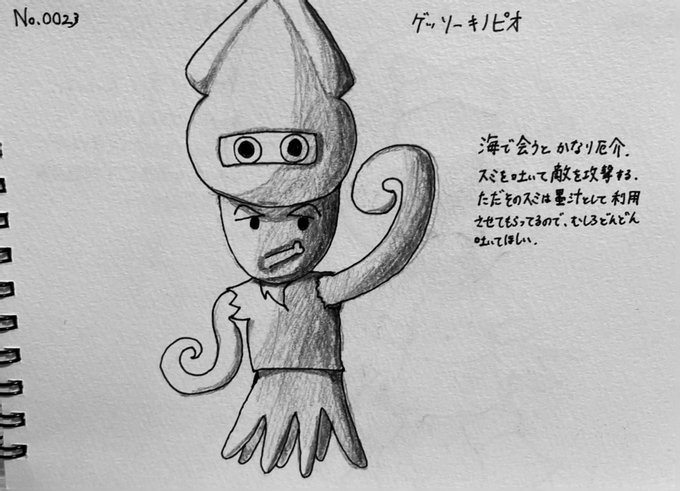 No.0023
ゲッソーキノピオ
海で会うとかなり厄介.
スミを吐いて敵を攻撃する.
ただそのスミは墨汁として利用
させてもらってるので、むしろどんどん
吐いてほしい.